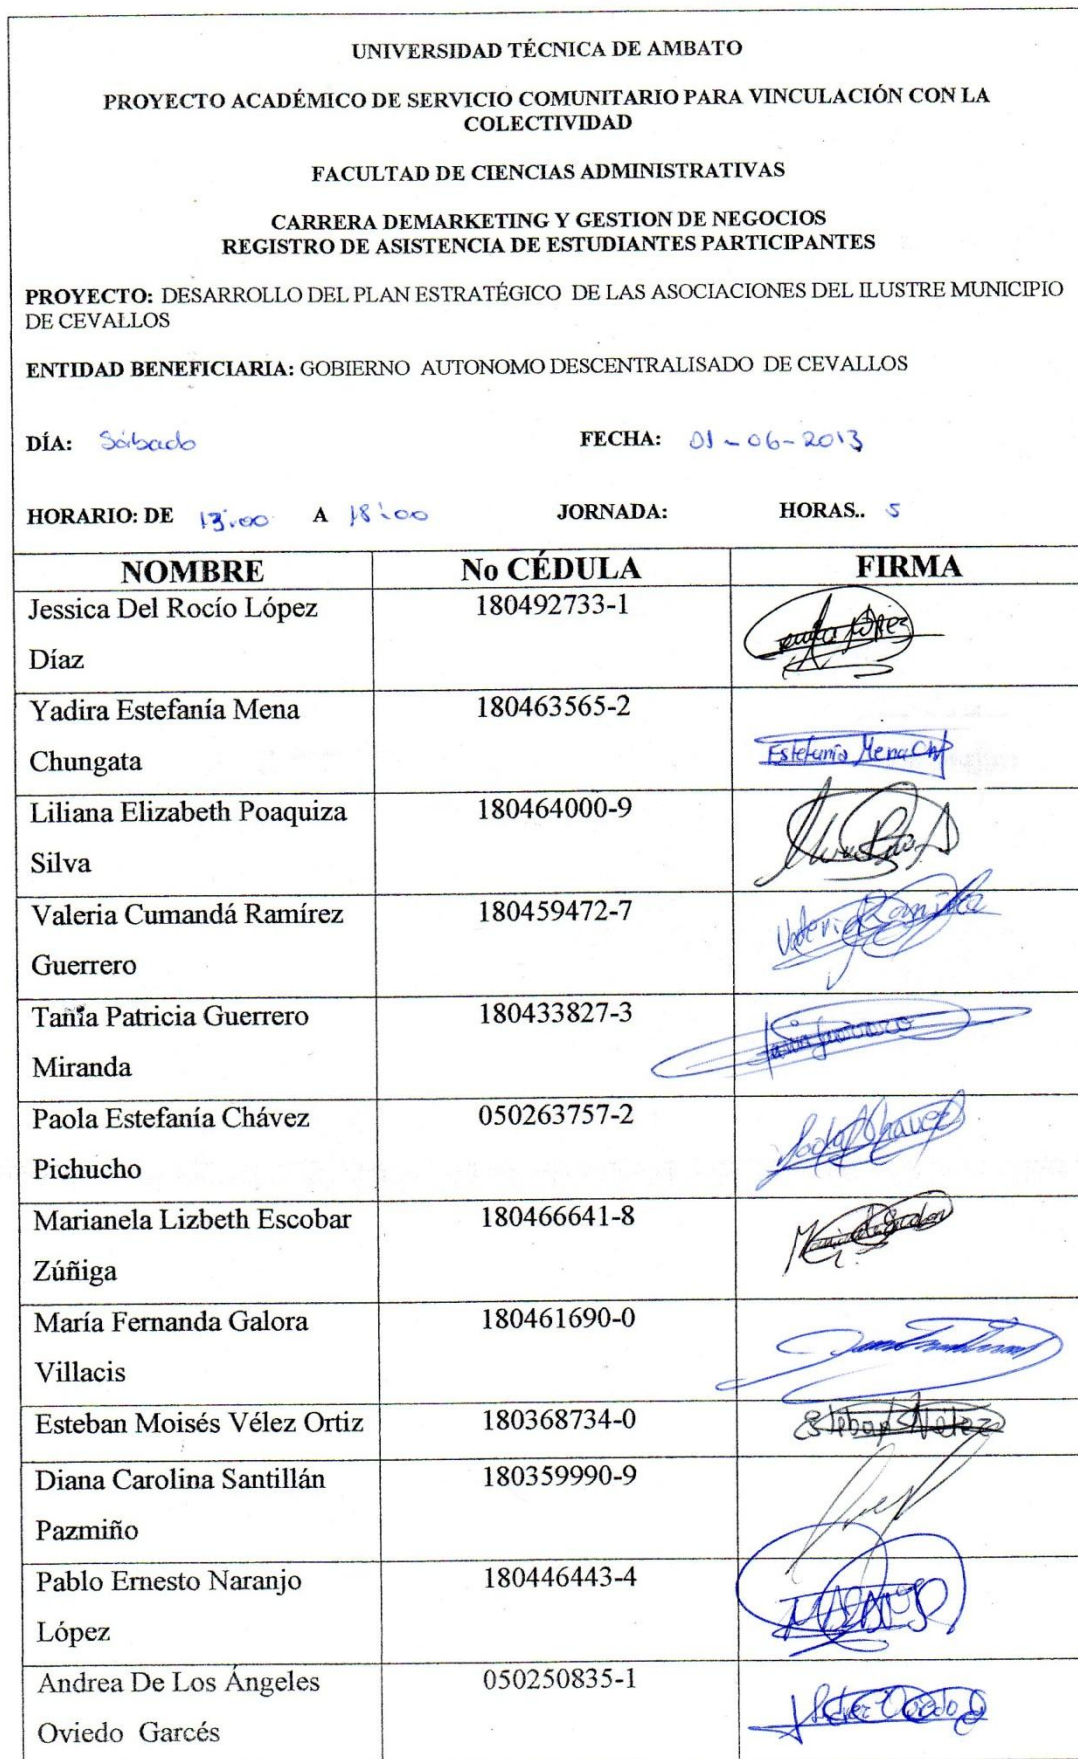 UNIVERSIDAD TÉCNICA DE AMBATO
PROYECTO ACADÉMICO DE SERVICIO COMUNITARIO PARA VINCULACIÓN CON LA
COLECTIVIDAD
FACULTAD DE CIENCIAS ADMINISTRATIVAS
CARRERA DEMARKETING Y GESTION DE NEGOCIOS
REGISTRO DE ASISTENCIA DE ESTUDIANTES PARTICIPANTES
PROYECTO: DESARROLLO DEL PLAN ESTRATÉGICO DE LAS ASOCIACIONES DEL ILUSTRE MUNICIPIO
DE CEVALLOS
ENTIDAD BENEFICIARIA: GOBIERNO AUTONOMO DESCENTRALISADO DE CEVALLOS
DÍA: Sábado FECHA: 01-06-2013
HORARIO: DE 13:00 A 18:00 JORNADA: HORAS.. 5
NOMBRE No CÉDULA FIRMA
Jessica Del Rocío López 180492733-1
Díaz
Yadira Estefanía Mena 180463565-2
Chungata Estefanía Mena Ch
Liliana Elizabeth Poaquiza 180464000-9
Silva
Valeria Cumandá Ramírez 180459472-7 Valeria Ramírez
Guerrero
Tania Patricia Guerrero 180433827-3 Tania Guerrero
Miranda
Paola Estefanía Chávez 050263757-2 Paola Chávez
Pichucho
Marianela Lizbeth Escobar 180466641-8
Zúñiga
María Fernanda Galora 180461690-0
Villacis
Esteban Moisés Vélez Ortiz 180368734-0 Esteban Vélez
Diana Carolina Santillán 180359990-9
Pazmiño
Pablo Ernesto Naranjo 180446443-4
López
Andrea De Los Ángeles 050250835-1
Oviedo Garcés Oviedo